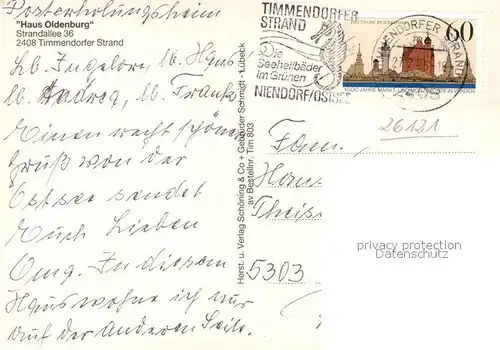 Posterholungsheim
"Haus Oldenburg"
Strandallee 36
2408 Timmendorfer Strand
Lb. Ingelore, lb. Hans
lb. Hedwig, lb. Frank
Einen recht schönen
Gruß von der
Ostsee sendet
Euch Lieben
Omg. In diesem
Haus wohne ich nur
auf der anderen Seite.
Herst. u. Verlag Schöning & Co + Gebrüder Schmidt · Lübeck
av Bestellnr. Tim 803
TIMMENDORFER
STRAND
Die
Seeheilbäder
im Grünen
NIENDORF/OSTSEE
DEUTSCHE BUNDESPOST
60
1000 JAHRE MARKT- UND MÜNZRECHTE IN VERDEN
26121
Fam.
Hans
Theis
5303
privacy protection
Datenschutz